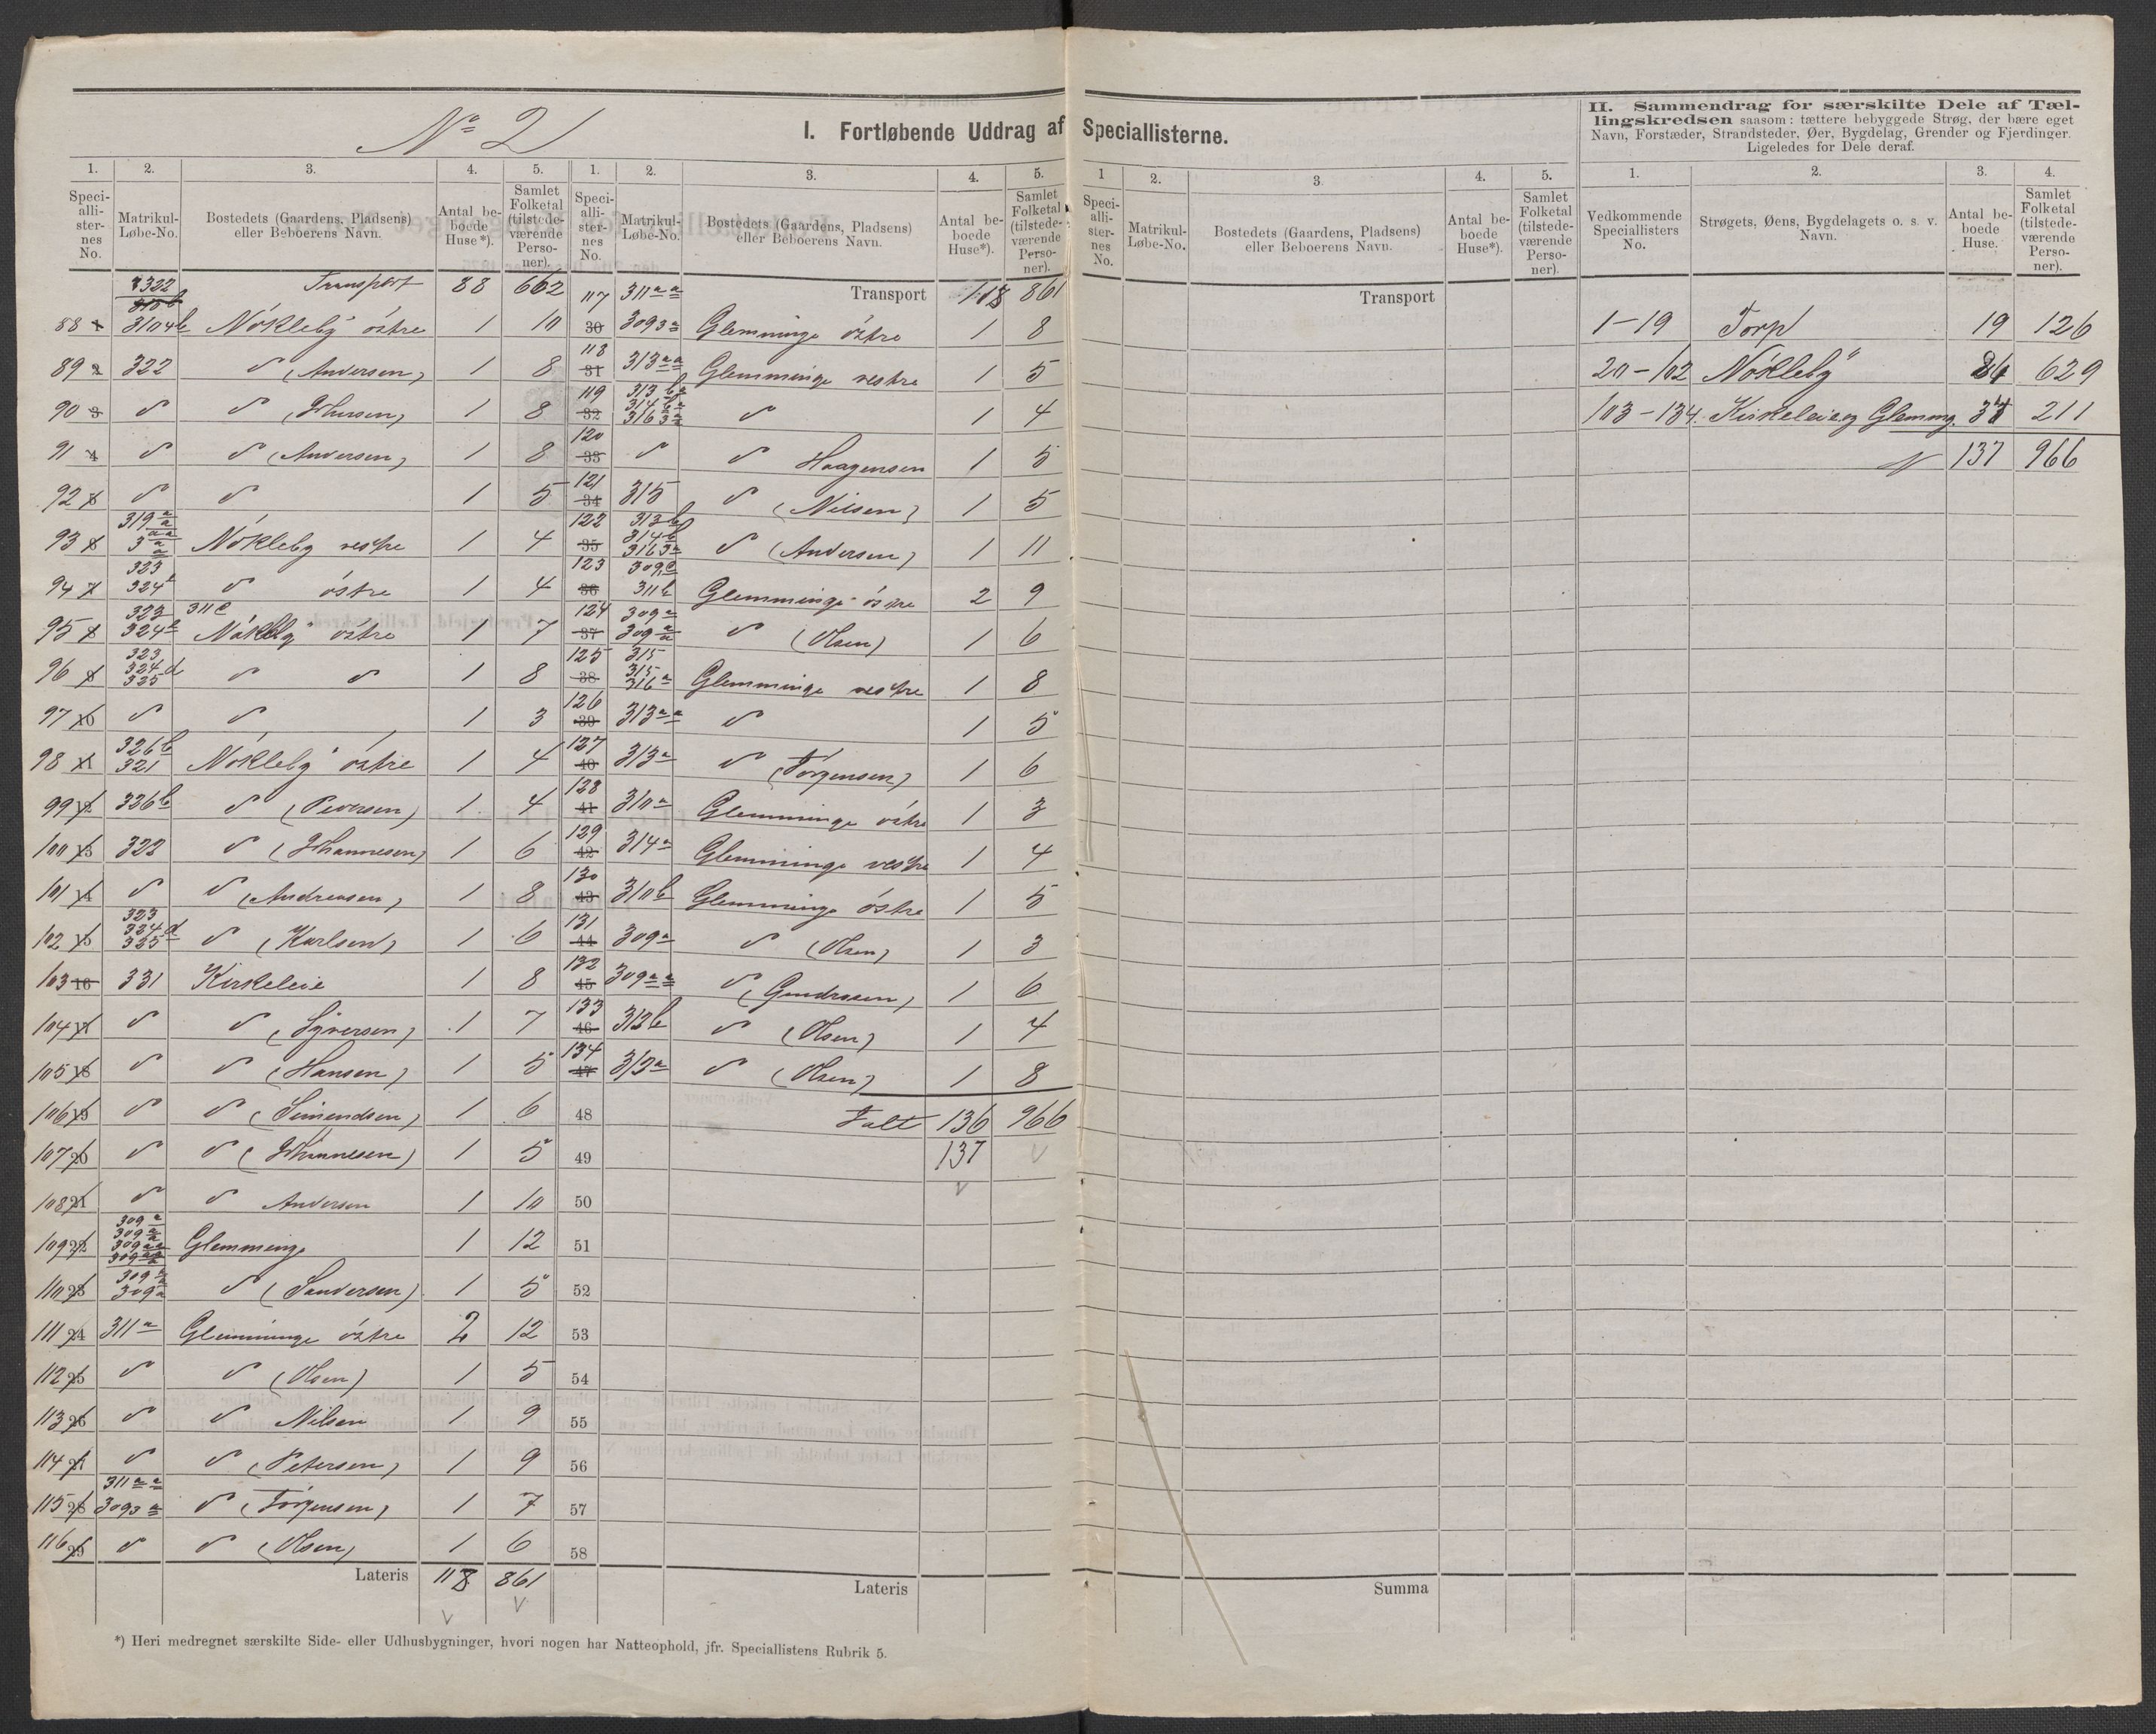 No 2
I. Fortløbende Uddrag af Speciallisterne.
II. Sammendrag for særskilte Dele af Tæl-
lingskredsen saasom: tættere bebyggede Strøg, der bære eget
Navn, Forstæder, Strandsteder, Øer, Bygdelag, Grender og Fjerdinger.
Ligeledes for Dele deraf.
1. 2. 3. 4. 5.
Speci-alli-ster-nes No. Matrikul-Løbe-No. Bostedets (Gaardens, Pladsens) eller Beboerens Navn. Antal be-boede Huse*). Samlet Folketal (tilstede-værende Perso-ner).
322 Transport 88 662
88 1 310 4 b Nökleby östre 1 10
89 2 322 " (Andersen) 1 8
90 3 " " 1 8
91 4 " " (Andersen) 1 8
92 5 " " 1 5
93 6 319 a Nökleby vestre 1 4
94 7 323 324 " östre 1 4
95 8 323 324 311 e Nökleby östre 1 7
96 9 323 324 d 325 " " 1 8
97 10 " " 1 3
98 11 326 b 321 Nökleby östre 1 4
99 12 326 b " (Pedersen) 1 4
100 13 322 " (Johannesen) 1 6
101 14 " " (Andreasen) 1 8
102 15 323 324 d 325 " (Karlsen) 1 6
103 16 331 Kirkeleie 1 8
104 17 " " (Syversen) 1 7
105 18 " " (Hansen) 1 5
106 19 " " (Simendsen) 1 6
107 20 " " (Johannesen) 1 5
108 21 " " Andersen 1 10
109 22 309 a 309 a 309 aa 309 aa Glemminge 1 12
110 23 309 a 309 a " 1 5
111 24 311 a Glemminge östre 2 12
112 25 " " (Olsen) 1 5
113 26 " " Nilsen 1 9
114 27 " " (Petersen) 1 9
115 28 311 a a 309 3 a " (Jörgensen) 1 7
116 29 " " (Olsen) 1 6
Lateris 118 861
1. 2. 3. 4. 5.
Speci-alli-ster-nes No. Matrikul-Løbe-No. Bostedets (Gaardens, Pladsens) eller Beboerens Navn. Antal be-boede Huse*). Samlet Folketal (tilstede-værende Perso-ner).
Transport 118 861
117 30 311 a a 309 3 a Glemminge östre 1 8
118 31 313 a a Glemminge vestre 1 5
119 32 313 b 314 b 316 3 a " 1 4
120 33 " " Haagensen 1 5
121 34 315 " (Nilsen) 1 5
122 35 313 b 314 b 316 3 a " (Andersen) 1 11
123 36 309 e 311 b Glemminge östre 2 9
124 37 309 a 309 a " (Olsen) 1 6
125 38 315 315 316 a Glemminge vestre 1 8
126 39 313 a a " 1 5
127 40 313 a " (Jörgensen) 1 6
128 41 310 a Glemminge östre 1 3
129 42 314 a Glemminge vestre 1 4
130 43 310 b Glemminge östre 1 5
131 44 309 a " (Olsen) 1 3
132 45 309 a a " 1 6
133 46 313 b " (Olsen) 1 4
134 47 313 a " (Olsen) 1 8
48 Ialt 136 966
49 137
50
51
52
53
54
55
56
57
58
Lateris
1 2. 3. 4. 5.
Speci-alli-ster-nes No. Matrikul-Løbe-No. Bostedets (Gaardens, Pladsens) eller Beboerens Navn. Antal be-boede Huse*). Samlet Folketal (tilstede-værende Perso-ner).
Transport
Summa
1. 2. 3. 4.
Vedkommende Speciallisters No. Strøgets, Øens, Bygdelagets o. s. v. Navn. Antal be-boede Huse. Samlet Folketal (tilstede-værende Perso-ner).
1-19 Torp 19 126
20-102 Nökleby 84 629
103-134. Kirkeleie og Glemmg. 34 211
137 966
*) Heri medregnet særskilte Side- eller Udhusbygninger, hvori nogen har Natteophold, jfr. Speciallistens Rubrik 5.